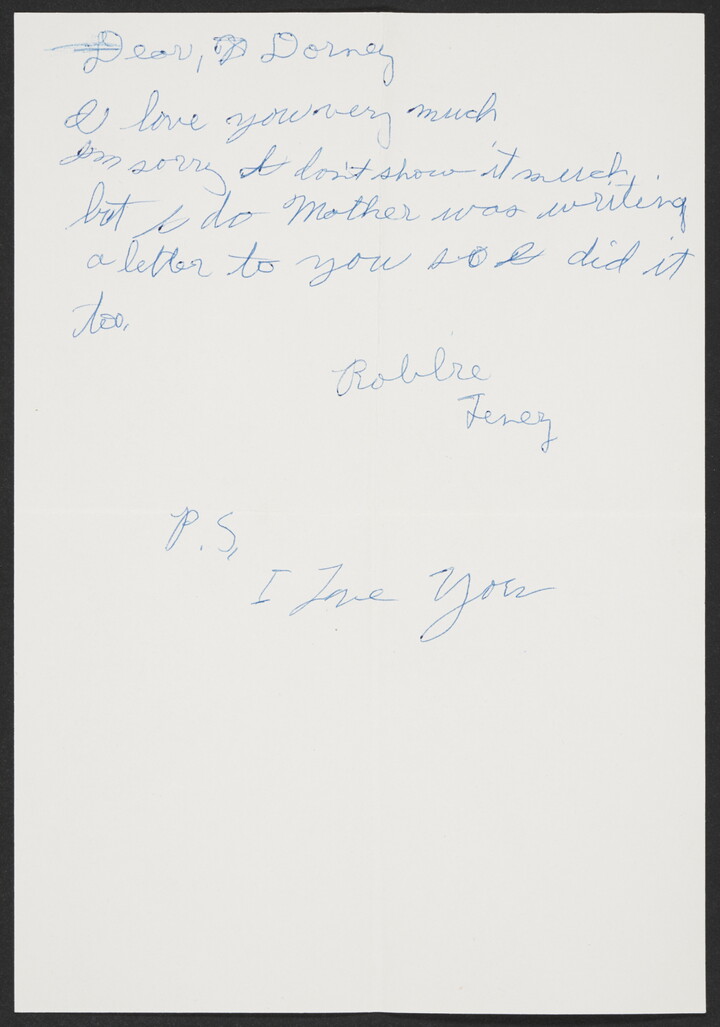 Dear, Dorney
I love you very much
I'm sorry I don't show it much,
but I do Mother was writing
a letter to you so I did it
too.
Robbie
Feney
P.S,
I Love You